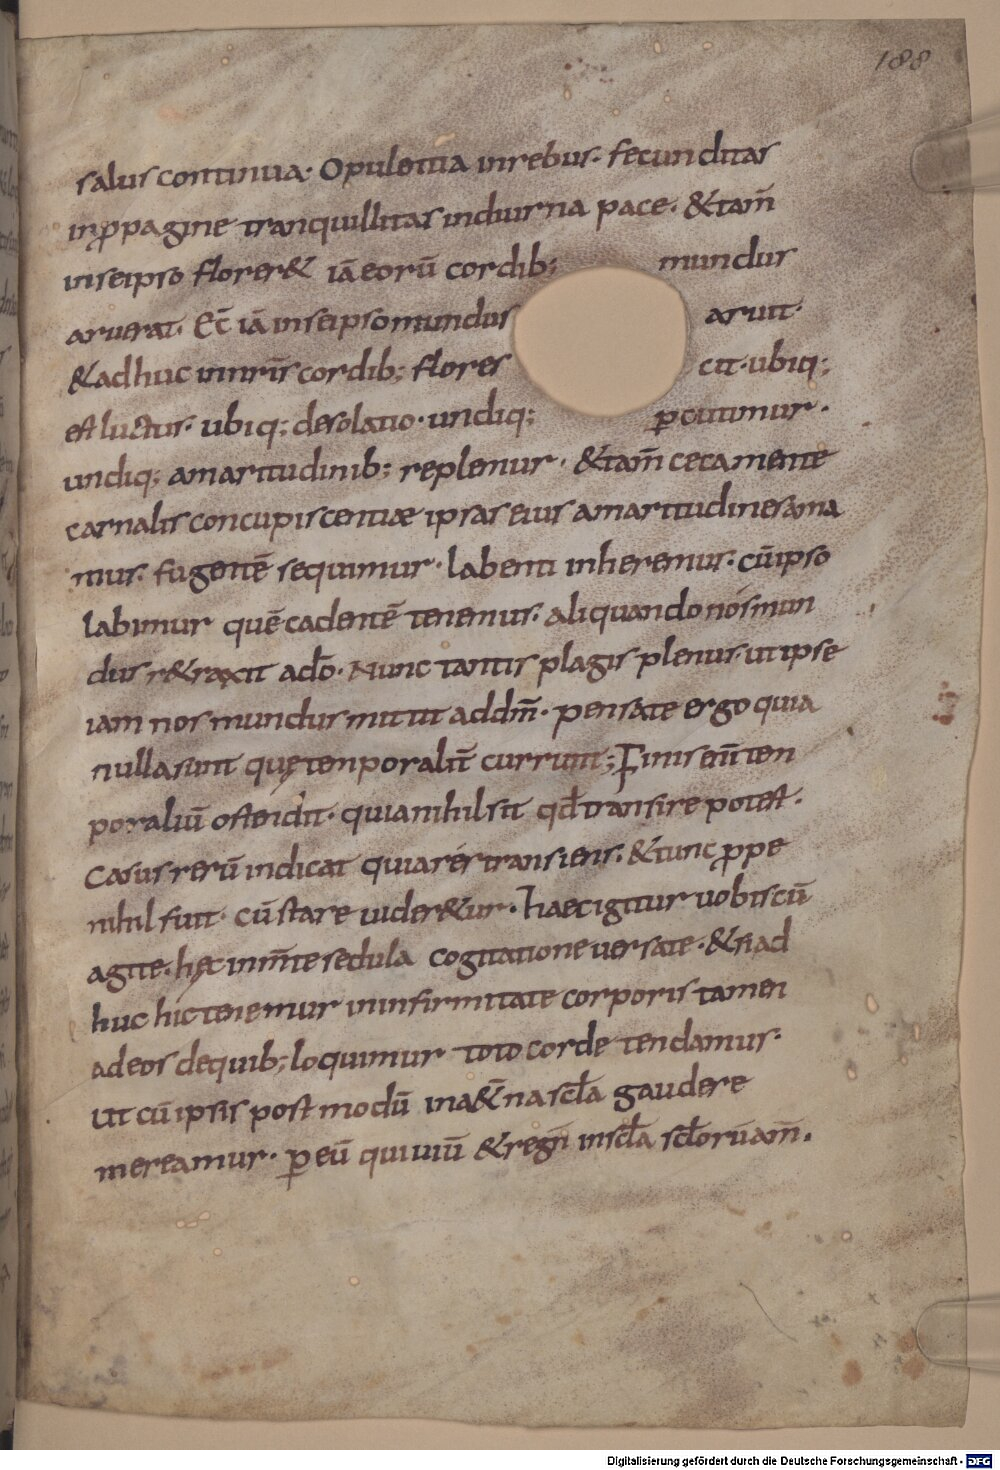 188
salus continua· Opulentia inrebus· fecunditas
inꝓpagine tranquillitas indiuirna pace· &tam̄
inseipso florer& iā eorū cordib; mundus
aruerat· Ec̄ iā inseipso mundus aruit·
&adhuc innr̄is cordib; flores cit· ubiq;
est luctus· ubiq; desolatio· undiq; ꝑcutimur·
undiq; amaritudinib; replemur· &tam̄ ceca mente
carnalis concupiscentiae ipsas eius amaritudines ama
mus· fugentē sequimur· labenti inheremus· cū ipso
labimur quē cadentē tenemus· aliquando nos mun
dus r&raxit ad dō· Nunc tantis plagis plenus· ut ipse
iam nos mundus mittit addm̄· pensate ergo quia
nulla sunt quę temporalit̄ currunt; Finis enī tem
poraliū ostendit· quia nihil sit qd̄ transire potest·
Casus rerū indicat quia res transiens· &tunc ꝓpe
nihil fuit· cū stare uider&ur· haec igitur uobiscū
agite· hęc inm̄te sedula cogitatione uersate· &si ad
huc hic tenemur ininfirmitate corporis tamen
ad eos de quib; loquimur toto corde tendamus·
ut cū ipsis post modū ina&̄na sc̄la gaudere
mereamur· ꝑ eū qui uiū &regn̄ insc̄la sc̄lorū am̄·
Digitalisierung gefördert durch die Deutsche Forschungsgemeinschaft - DFG